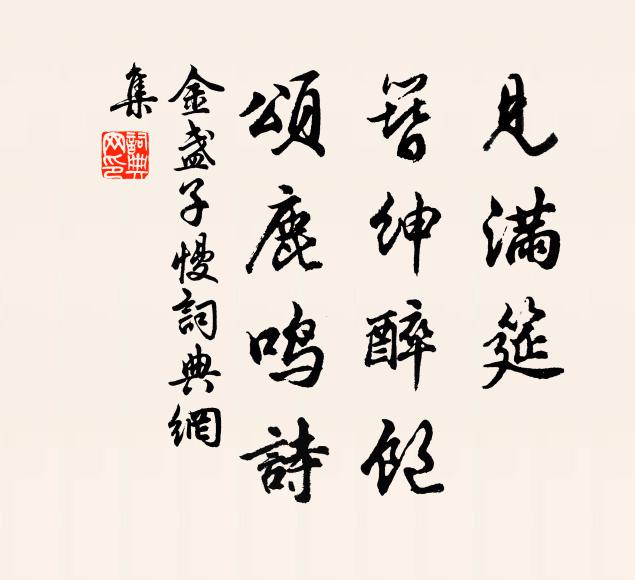 見滿筵
簪紳醉飽
頌鹿鳴詩
金盞子慢詞典網
集
詞典
网印